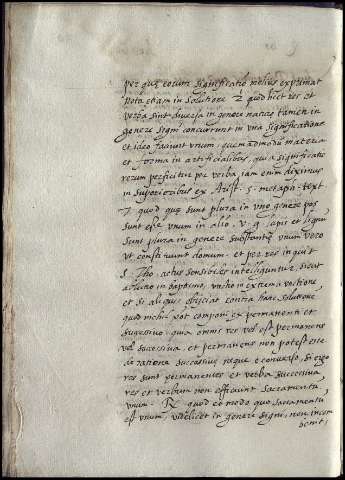 per quę eorum significatio melius exprimat
Nota etiam in solutione 2 quod licet res et
verba sint diversa in genere naturę tamen in
genere signi concurrunt in una significatione
et ideo faciunt unum, quemadmodum materia
et forma in artificialibus, quia significatio
rerum perficitur per verba iam enim diximus
in superioribus ex Arist. 5. metaph. text.
7. quod quę sunt plura in uno genere pos
sunt esse unum in alio. v. g. lapis et lignum
sunt plura in genere substantię unum vero
ut constituunt domum, et per res inquit
S. Tho. actus sensibiles intelliguntur, sicut
ablutio in baptismo, unctio in extrema unctione,
et si aliquis obijciat contra hanc solutionem
quod nihil pot componi ex permanenti et
successivo, quia omnis res vel est permanens
vel successiva, et permanens non potest esse
de ratione successivi neque e converso, si ergo
res sunt permanentes et verba successiva
res et verbum non efficiunt sacramentum
unum. R. quod eo modo quo sacramentu
est unum, videlicet in genere signi, non incon